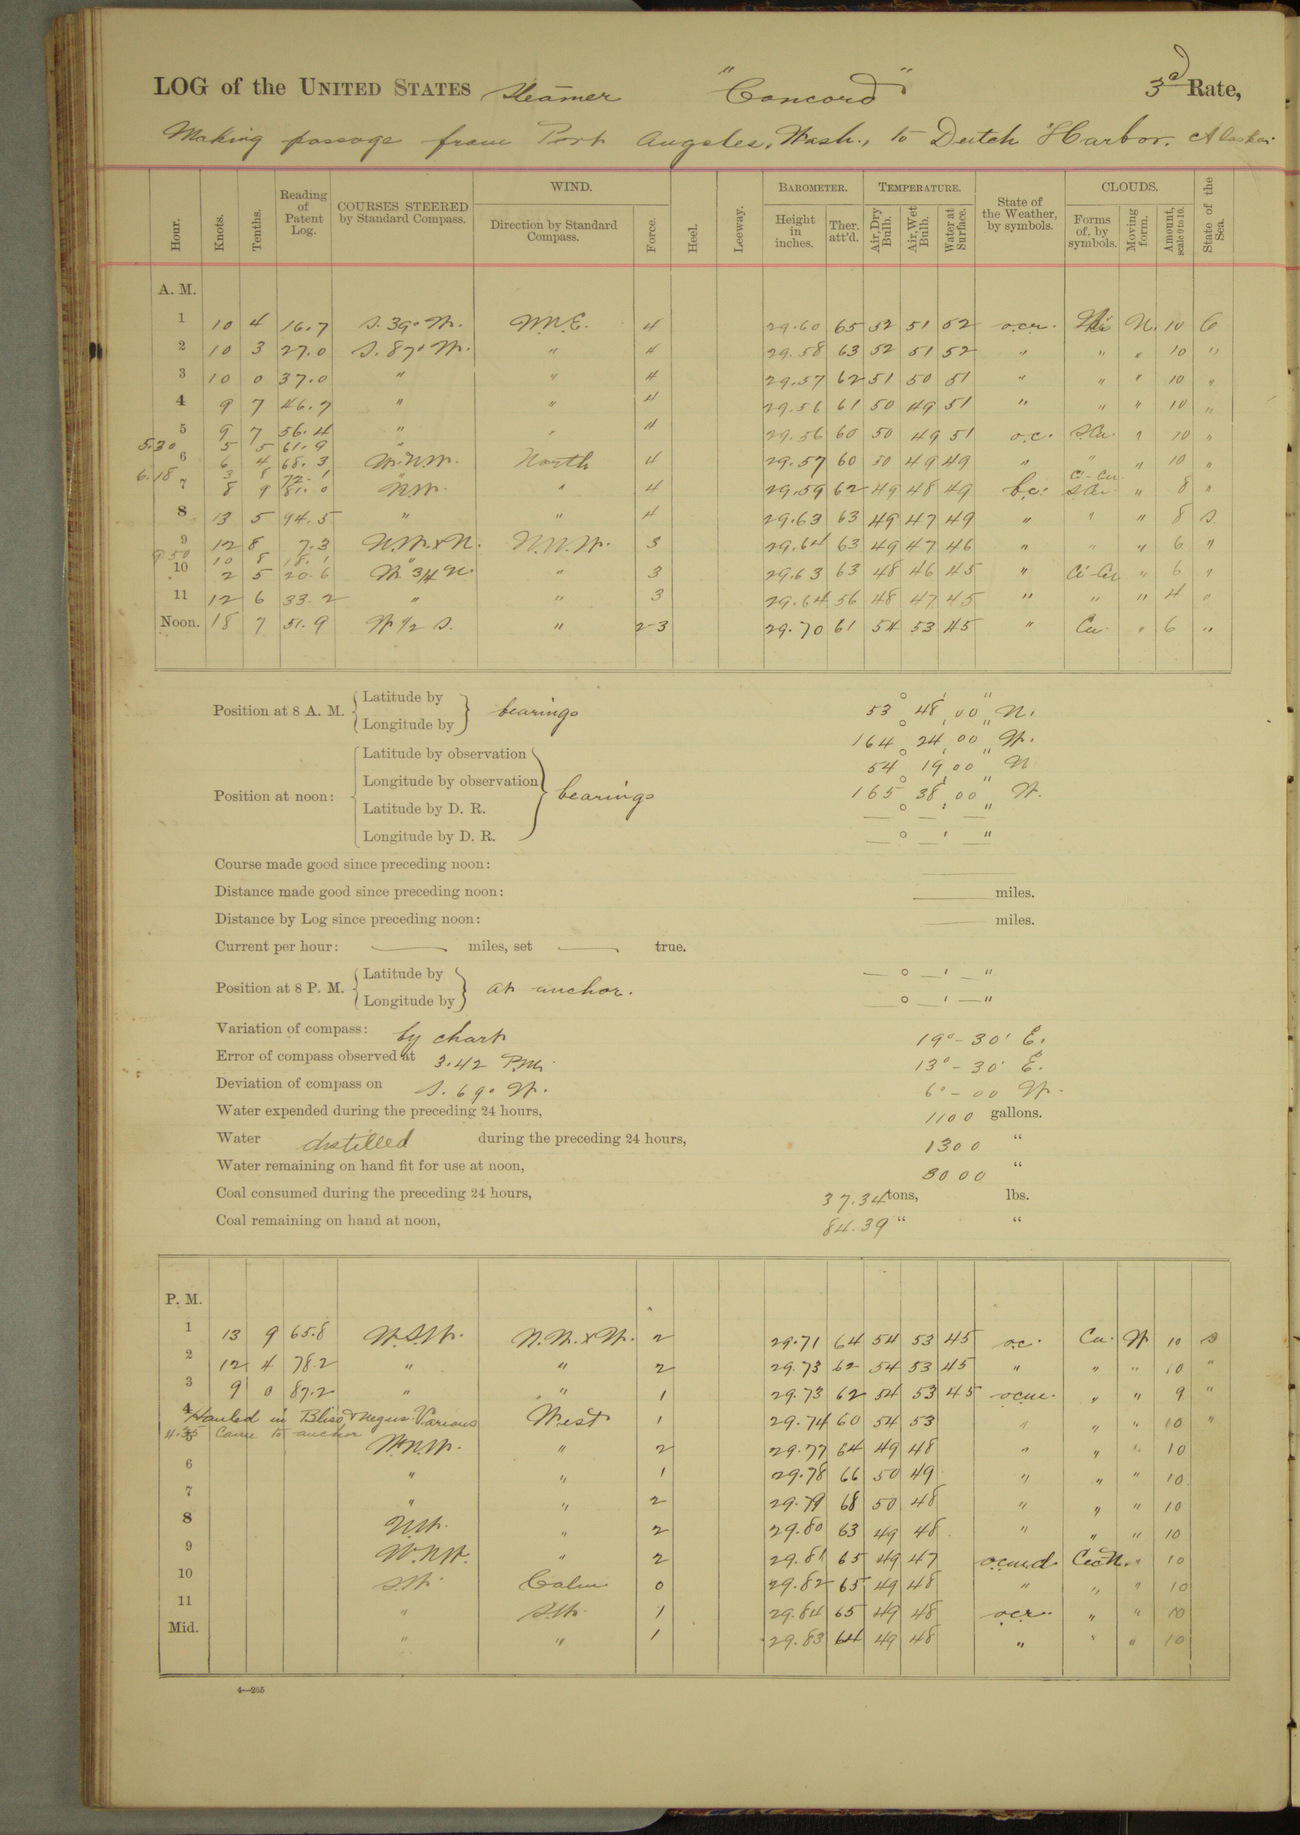 LOG of the UNITED STATES Steamer "Concord" 3d Rate,
Making passage from Port Angeles, Wash., to Dutch Harbor, Alaska.
Hour. Knots. Tenths. Reading of Patent Log. COURSES STEERED by Standard Compass. WIND. Direction by Standard Compass. Force. Heel. Leeway. BAROMETER. Height in inches. Ther. att'd. TEMPERATURE. Air, Dry Bulb. Air, Wet Bulb. Water at Surface. State of the Weather, by symbols. CLOUDS. Forms of, by symbols. Moving form. Amount, scale 0 to 10. State of the Sea.
A. M.
1 10 4 16.7 S. 39° W. N.N.E. 4 29.60 65 52 51 52 o.c.r. N. 10 C
2 10 3 27.0 S. 87° W. " 4 29.58 63 52 51 52 " " " 10 "
3 10 0 37.0 " " 4 29.57 62 51 50 51 " " " 10 "
4 9 7 46.7 " " 4 29.56 61 50 49 51 " " " 10 "
5 9 7 56.4 " " 4 29.56 60 50 49 51 o.c. S.Cu. " 10 "
5.30 5 5 61.9 "
6 6 4 68.3 W.N.W. North 4 29.57 60 50 49 49 " " " 10 "
6.18 3 8 72.1 "
7 8 9 81.0 N.W. " 4 29.59 62 49 48 49 b.c. Ci-Cu. S.Cu. " 8 "
8 13 5 94.5 " " 4 29.63 63 49 47 49 " " " 8 S.
9 12 8 7.3 N.W. x N. N.N.W. 3 29.64 63 49 47 46 " " " 6 "
9.50 10 8 18.1 "
10 2 5 20.6 W. 3/4 N. " 3 29.63 63 48 46 45 " Ci-Cu " 6 "
11 12 6 33.2 " " 3 29.64 56 48 47 45 " " " 4 "
Noon. 18 7 51.9 W 1/2 S. " 2-3 29.70 61 54 53 45 " Cu. " 6 "
Position at 8 A. M. Latitude by bearings 53° 48' 00" N.
Longitude by 164° 24' 00" W.
Position at noon: Latitude by observation bearings 54° 19' 00" N
Longitude by observation 165° 38' 00" W.
Latitude by D. R. — ° — ' — "
Longitude by D. R. — ° — ' — "
Course made good since preceding noon: ———
Distance made good since preceding noon: ——— miles.
Distance by Log since preceding noon: ——— miles.
Current per hour: ——— miles, set ——— true.
Position at 8 P. M. Latitude by at anchor. — ° — ' — "
Longitude by — ° — ' — "
Variation of compass: by chart 19° - 30' E.
Error of compass observed at 3.42 P.M. 13° - 30' E.
Deviation of compass on S. 69° W. 6° - 00 W.
Water expended during the preceding 24 hours, 1100 gallons.
Water distilled during the preceding 24 hours, 1300 "
Water remaining on hand fit for use at noon, 3000 "
Coal consumed during the preceding 24 hours, 37.34 tons, lbs.
Coal remaining on hand at noon, 84.39 " "
P. M.
1 13 9 65.8 W.S.W. N.W. x W. 2 29.71 64 54 53 45 o.c. Cu. W 10 S
2 12 4 78.2 " " 2 29.73 62 54 53 45 " " " 10 "
3 9 0 87.2 " " 1 29.73 62 54 53 45 o.c.m. " " 9 "
4 Hauled in Bliss & Negus Various West 1 29.74 60 54 53 " " " 10 "
4.35 Came to anchor
5 W.N.W. " 2 29.77 64 49 48 " " " 10
6 " " 1 29.78 66 50 49 " " " 10
7 " " 2 29.79 68 50 48 " " " 10
8 N.W. " 2 29.80 63 49 48 " " " 10
9 W.N.W. " 2 29.81 65 49 47 o.c.m.d. " 10
10 S.W. Calm 0 29.82 65 49 48 " " " 10
11 " S.W. 1 29.84 65 49 48 o.c.r. " " 10
Mid. " " 1 29.83 64 49 48 " " " 10
4—265